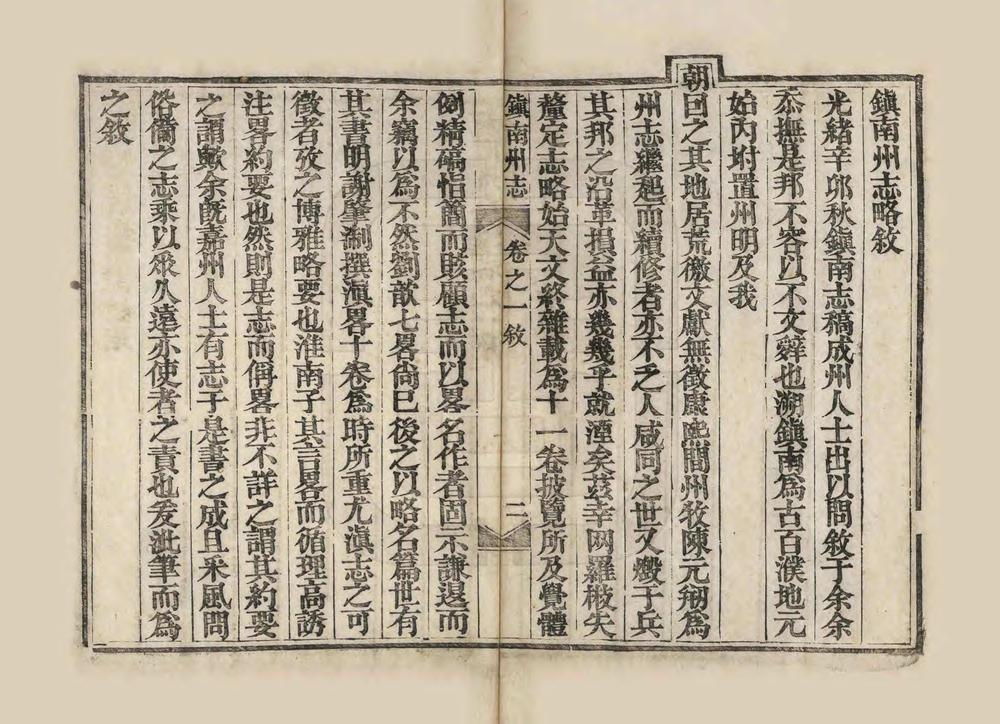 鎮南州志略敘
光緒辛卯秋鎮南志稿成州人士出以問敘于余余
忝撫是邦不容以不文辭也溯鎮南為古百濮地元
始內坿置州明及我
朝因之其地居荒徼文獻無徵康熙間州牧陳元剏為
州志繼起而續修者亦不乏人咸同之世又燬于兵
其邦之沿革損益亦幾幾乎就湮矣茲幸网羅散失
釐定志略始天文終雜載為十一卷披覽所及覺體
鎮南州志 卷之一敘 二
例精碻恉簡而賅顧志而以畧名作者固示謙退而
余竊以為不然劉歆七畧尚已後之以略名篇世有
其書明謝肇淛撰滇畧十卷為時所重尤滇志之可
徵者攷之博雅略要也淮南子其言畧而循理高誘
注畧約要也然則是志而偁畧非不詳之謂其約要
之謂歟余既嘉州人士有志于是書之成且采風問
俗備之志乘以永久遠亦使者之責也爰泚筆而為
之敘